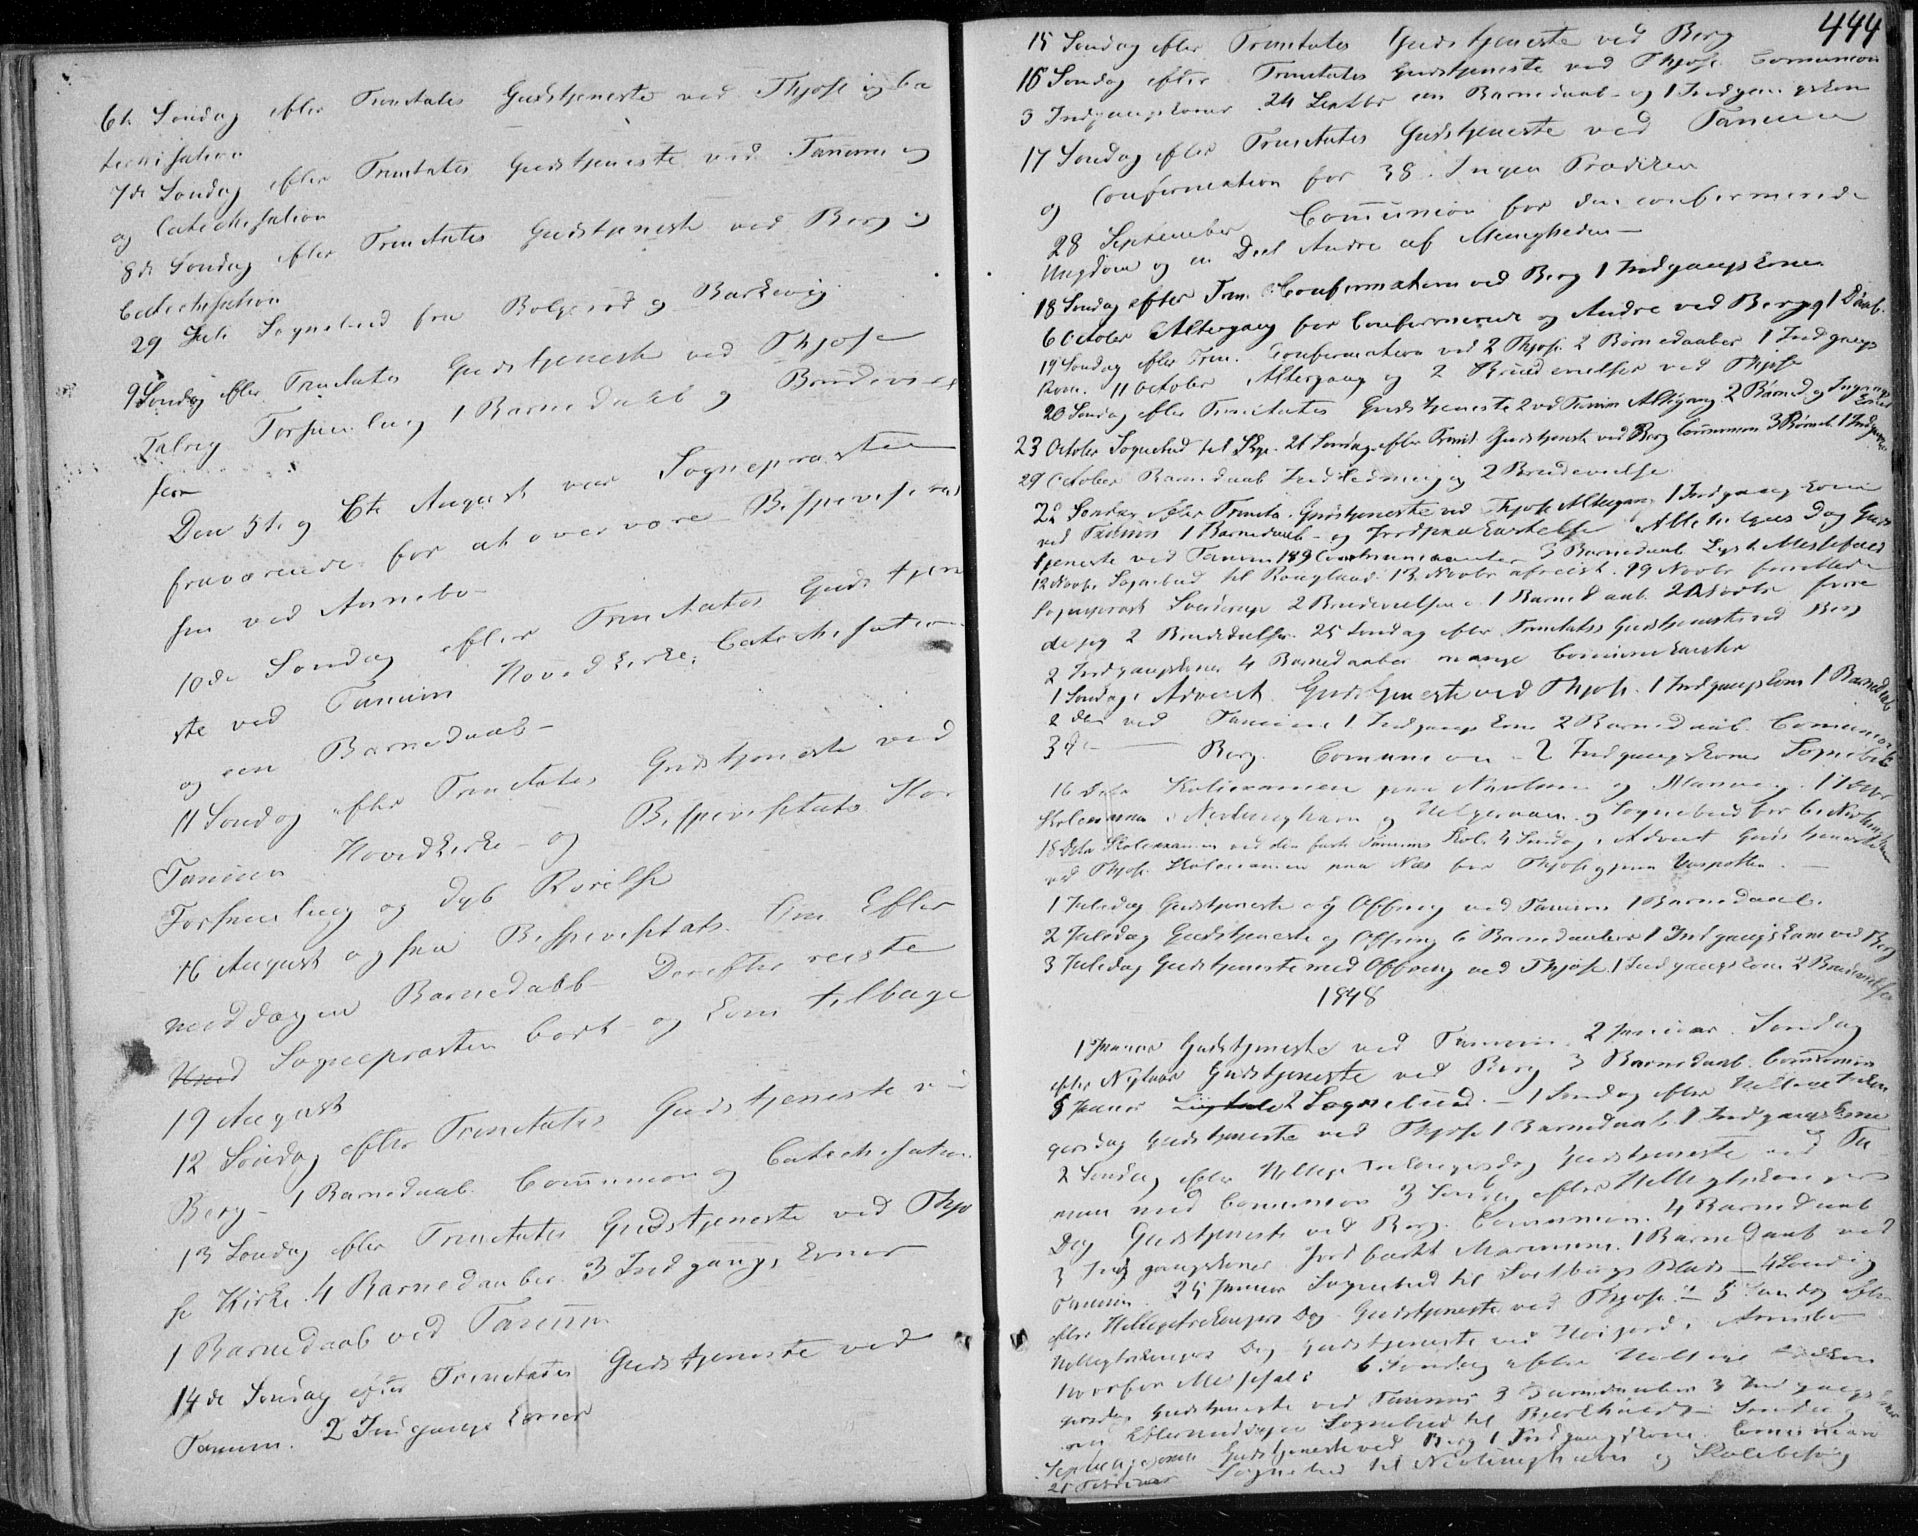 6te Søndag efter Trinitatis Gudstjeneste ved Thjose og Ca
techisation
7de Søndag efter Trinitatis Gudstjeneste ved Tanum og
og Catechisation
8de Søndag efter Trinitatis Gudstjeneste ved Berg og
Catechisation
29 Juli Sognebud fra og
9 Søndag efter Trinitatis Gudstjeneste ved Thjose
Talrig Forsamling 1 Barnedaab og Brudeviel
ser
Den 5te og 6te August var Sognepræsten
fraværende for at overvære Bispevisitat
sen ved Annebo
10de Søndag efter Trinitatis Gudstjene
ste ved Tanum Hovedkirke, Catechisation
og een Barnedaab -
11 Søndag efter Trinitatis Gudstjeneste ved
Tanum Hovedkirke - og Bispevisitats Stor
Forsamling og dyb Rørelse
16 August ogsaa Bispevisitats Om Efter
middagen Barnedaab - Derefter reiste
Sognepræsten bort - og kom tilbage
19 August
12 Søndag efter Trinitatis Gudstjeneste v
Berg - 1 Barnedaab Communion og Catechisation
13 Søndag efter Trinitatis Gudstjeneste ved Thjo
se Kirke. 4 Barnedaaber 3 Indgangskoner
1 Barnedaab ved Tanum
14de Søndag efter Trinitatis Gudstjeneste ved
Tanum. 2 Indgangskoner
444
15 Søndag efter Trinitatis Gudstjeneste ved Berg
16 Søndag efter Trinitatis Gudstjeneste ved Thjose Comunion
3 Indgangskoner 24 Septbr een Barnedaab og 1 Indgangskon
17 Søndag efter Trinitatis Gudstjeneste ved Tanum
og Confirmation for 38. Ingen Prædiken
28 September Communion for den confirmerede
Ungdom og en Deel Andre af Menigheden -
18 Søndag efter Trin. Confirmation ved Berg 1 Indgangskone
6 October Altergang for Confirmerede og Andre ved Berg og 1 Daab.
19 Søndag efter Trin. Confirmation ved Thjose 2 Børnedaaber 1 Indgangs
kone. 11 October Altergang og 2 Brudevielser ved Thjose
20 Søndag efter Trinitatis Gudstjeneste ved Tanum Altergang 2 Børned. og Indgangskone
23 October Sognebud til 21 Søndag efter Trinit. Gudstjeneste ved Berg Communion 3 Børned. 1 Indgangs
29 October Barnedaab Indledning og 2 Brudevielse
22 Søndag efter Trinit. Gudstjeneste ved Thjose Altergang 1 Indgangskone
ved Tanum 1 Barnedaab - og Jordpaakastelse Alle helgens Dag Guds
tjeneste ved Tanum 189 Communicanter 3 Barnedaab
12 Novbr Sognebud til 13 Novbr afreist. 19 Novbr forrettede
Sognepræst 2 Brudevielser 1 Barnedaab 21 Novbr forre
de jeg 2 25 Søndag efter Trinitatis Gudstjeneste ved Berg
2 Indgangskoner 4 Barnedaaber mange
1 Søndag i Advent Gudstjeneste ved Thjose. 1 Indgangskone 1 Barnedaab
2 den ved Tanum 1 Indgangskone 2 Barnedaab. Comunion
3de - Berg. Comunion - 2 Indgangskoner Sognebud
16 Decbr Skoleexamen paa og
Skoleexamen i Nevlunghavn og Helgeroaen og Sognebud for
18 Decbr Skoleexamen ved den faste Tanums Skole 4 Søndag i Advent Gudstjeneste
ved Thjose Skoleexamen paa Næs
1 Juledag Gudstjeneste og Offring ved Tanum 1 Barnedaab.
2 Juledag Gudstjeneste og Offring 6 Barnedaaber 1 Indgangskone ved Berg
3 Juledag Gudstjeneste med Offring ved Thjose 1 Indgangskone 2 Brudevielser
1848
1 Januar Gudstjeneste ved Tanum. 2 Januar Søndag
efter Nytaar Gudstjeneste ved Berg 3 Barnedaab. Comunion
8 Januar 2 Sognebud. - 1 Søndag efter Hellige Trekon
gersdag Gudstjeneste ved Thjose 1 Barnedaab 1 Indgangskone
2 Søndag efter Hellige Trekongersdag Gudstjeneste ved Ta
num med Comunion 3 Søndag efter Helligtrekongers
Dag Gudstjeneste ved Berg. Comunion. 4 Barnedaab
3 Indgangskoner. 1 Barnedaab ved
Tanum. 25 Januar Sognebud til Plads - 4 Søndag
efter Helligetrekongers Dag Gudstjeneste ved Thjose - 5 Søndag efter
Helligtrekongers Dag Gudstjeneste ved i Annebo
hvorfor Messefald 6 Søndag efter Hellige Trekon
gersdag Gudstjeneste ved Tanum 3 Barnedaaber 3 Indgangskoner
om Eftermiddagen Sognebud til Søndag
Septuagesima Gudstjeneste ved Berg 1 Indgangskone. Comunion
21 Februar Sognebud til Nevlunghavn og Skolebesøg